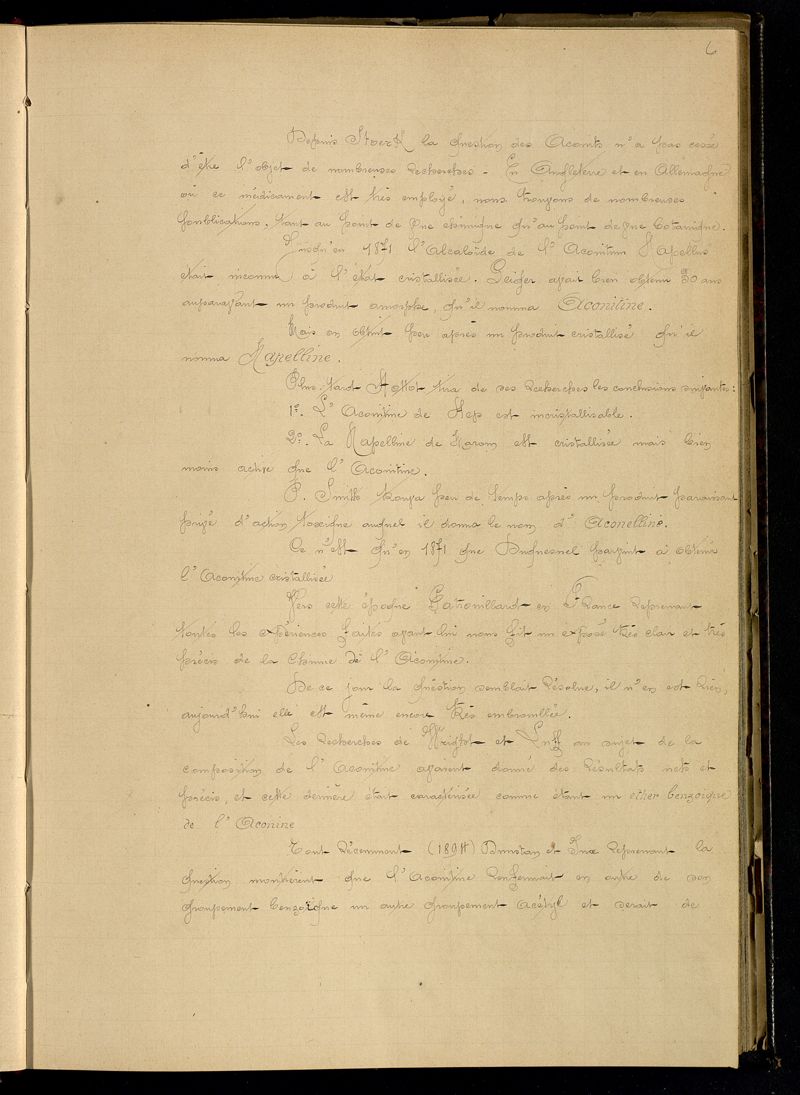 6
Depuis Stoerk la question des Aconits n'a pas cessé
d'être l'objet de nombreuses recherches - En Angleterre et en Allemagne
où ce médicament est très employé, nous trouvons de nombreuses
publications, tant au point de vue chimique qu'au point de vue botanique.
Jusqu'en 1871 l'Alcaloïde de l'Aconitum Napellus
était inconnu à l'état cristallisée. Geiger avait bien obtenu 30 ans
auparavant un produit amorphe, qu'il nomma Aconitine.
Mais on obtint peu après un produit cristallisé qu'il
nomma Napelline.
Plus tard Hottot tira de ses recherches les conclusions suivantes:
1º. L'Aconitine de Hep est incristallisable.
2º. La Napelline de Morson est cristallisée mais bien
moins active que l'Aconitine.
P. Smith trouva peu de temps après un produit paraissant
privé d'action toxique auquel il donna le nom d'Aconelline.
Ce n'est qu'en 1871 que Duquesnel parvint à obtenir
l'Aconitine cristallisée
Vers cette époque Patrouillard en France reprenant
toutes les expériences faites avant lui nous fit un exposé très clair et très
précis de la Chimie de l'Aconitine.
De ce jour la question semblait résolue, il n'en est rien,
aujourd'hui elle est même encore très embrouillée.
Les recherches de Wright et Luff au sujet de la
composition de l'Aconitine avaient donné des résultats nets et
précis, et cette dernière était caractérisée comme étant un éther benzoïque
de l'Aconine
Tout récemment (1894) Dunstan et Ince reprenant la
question montrèrent que l'Aconitine renfermait en outre de son
groupement benzoïque un autre groupement acétyl et serait de